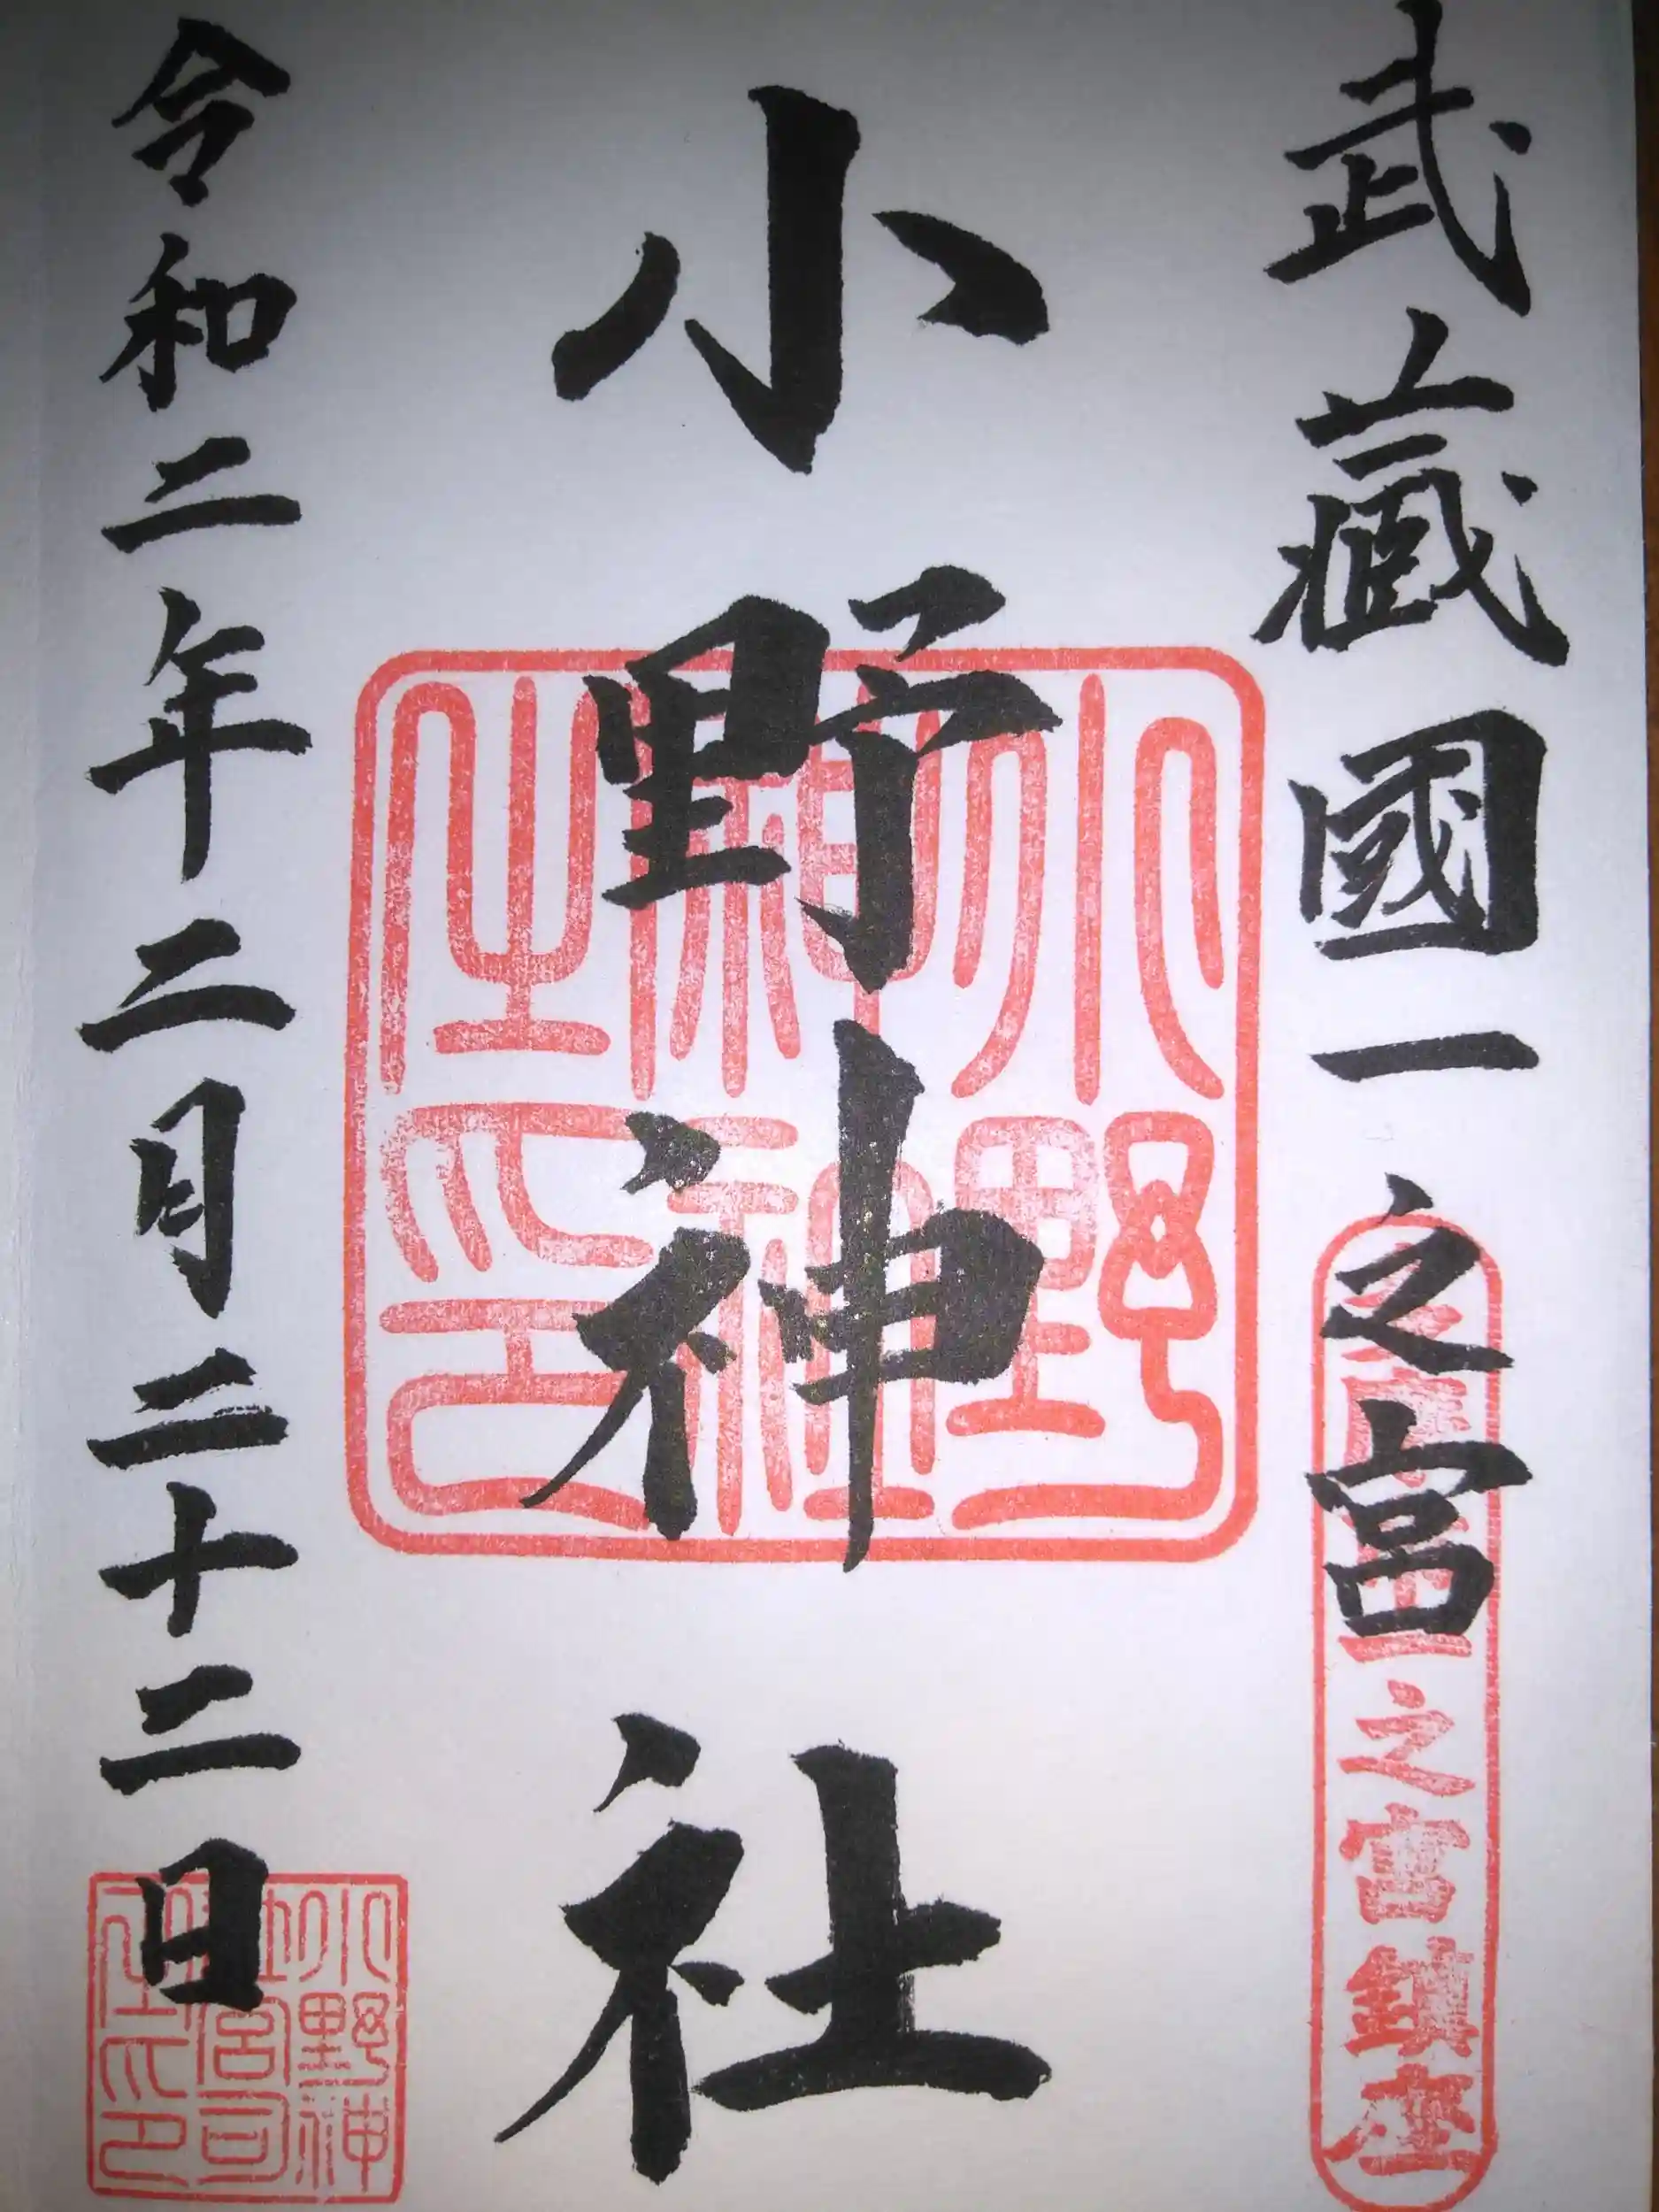 武藏國一之宮
小野神社
令和二年二月二十二日
小野
神社
之印
之宮鎮座
小野神
社宮司
之印